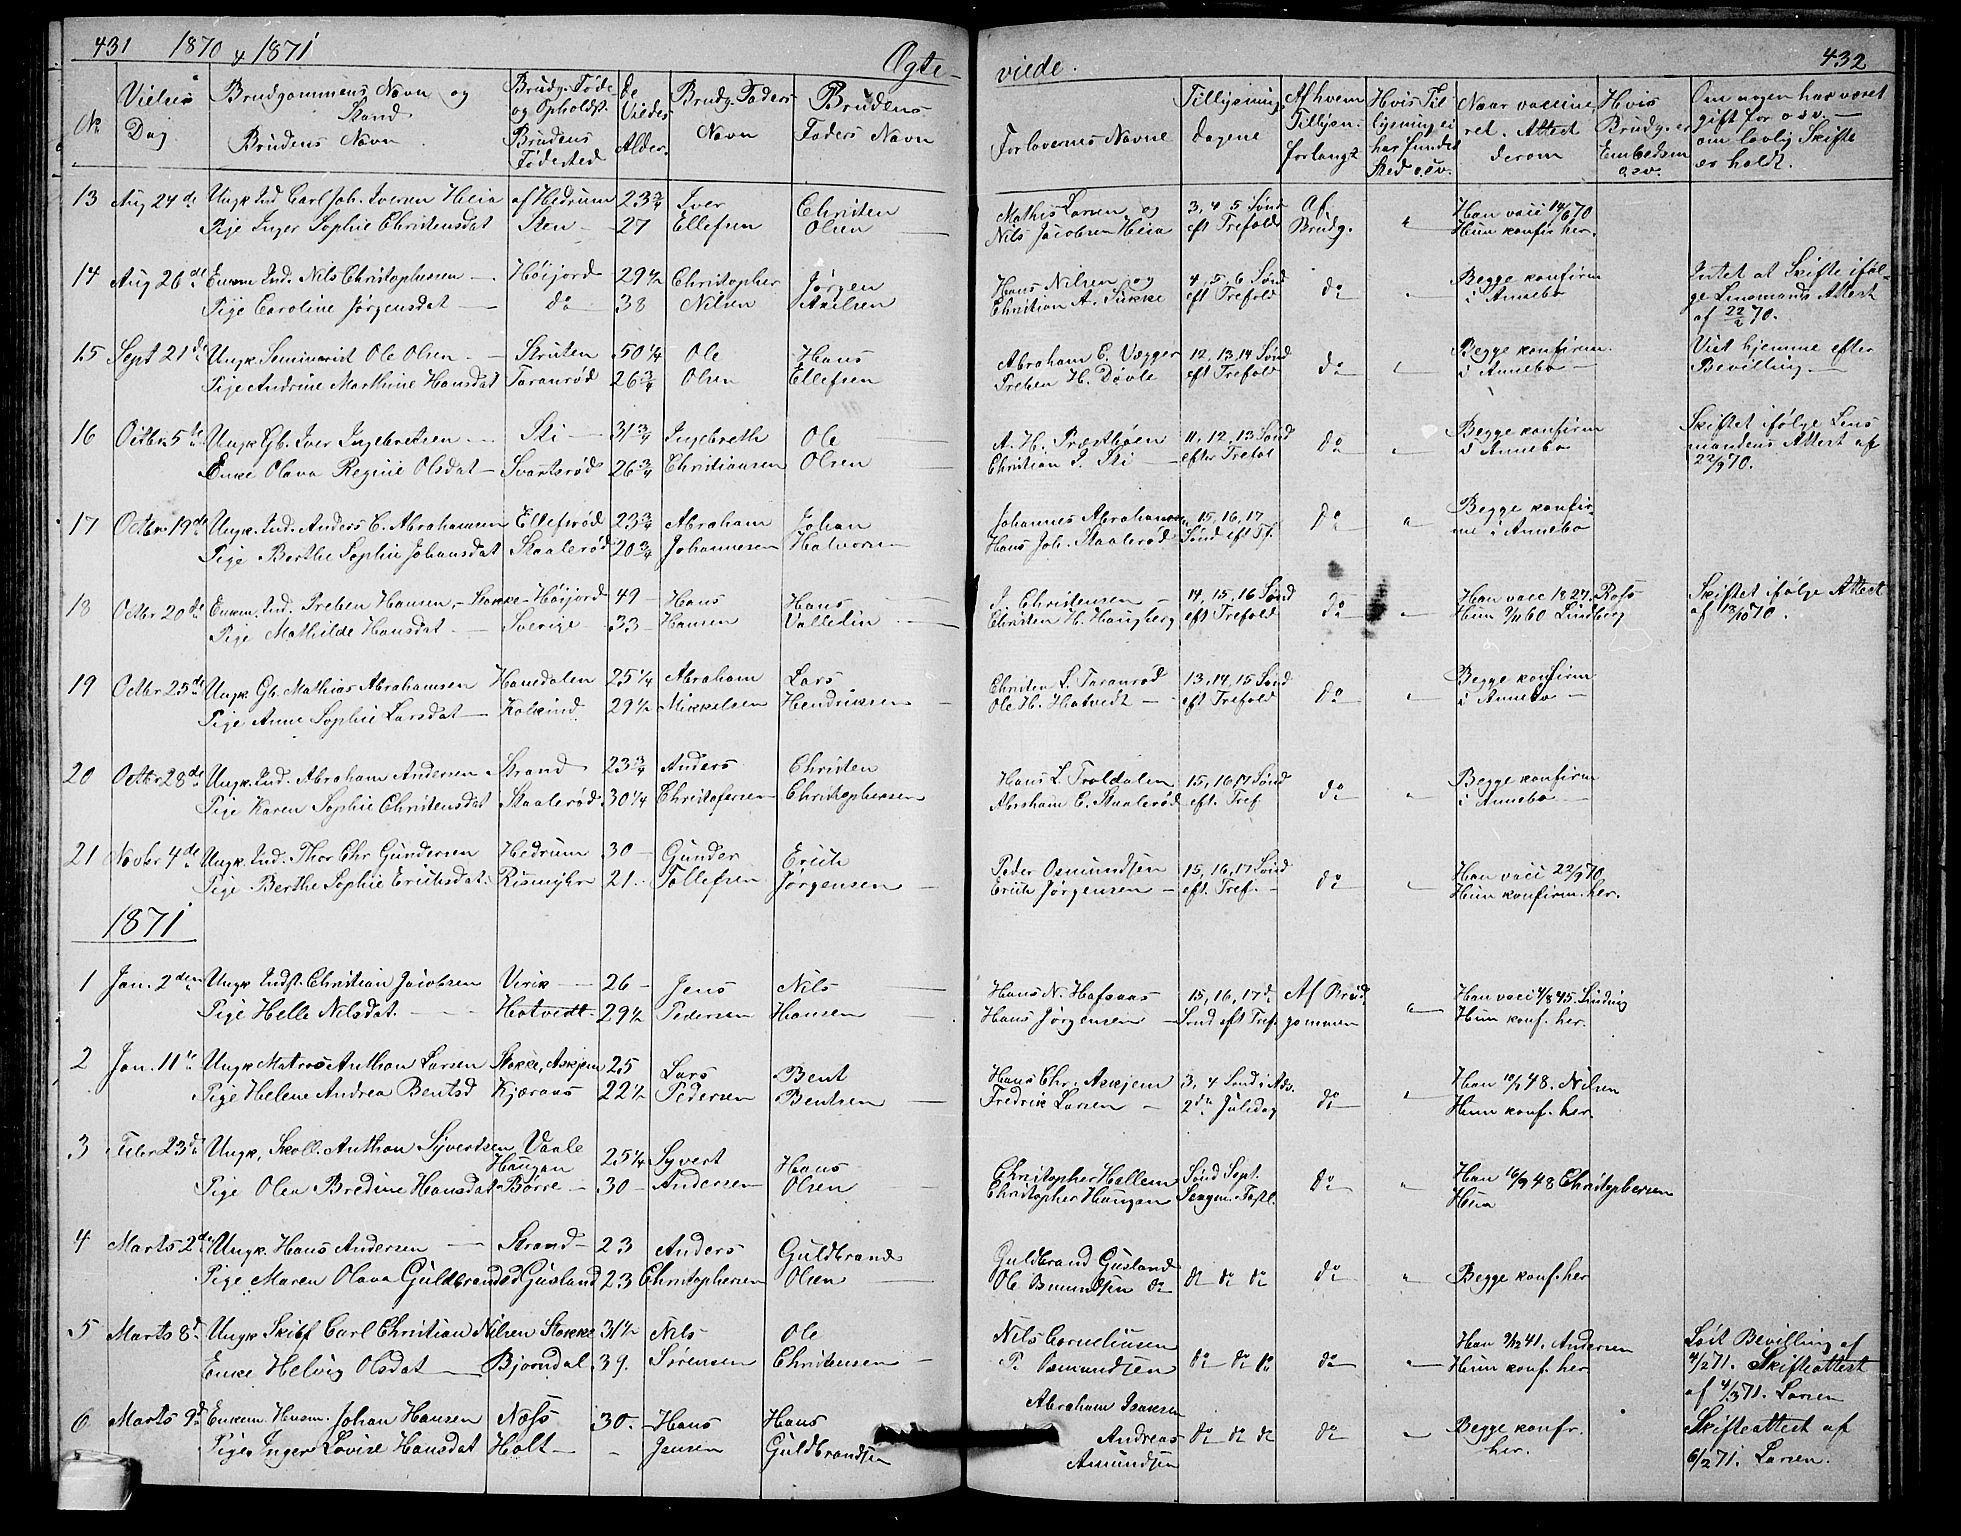 431 1870 & 1871 Ægte-
No
Vielses Dag
Brudgommens Navn og Stand
Brudens Navn
Brudg. Føde og Opholdst.
Brudens Fødested
De Viedes Alder.
Brudg. Faders Navn
Brudens Faders Navn
13 Aug 24de Ungk Ind Carl Joh. Iversen Heia af Hedrum 23 3/4 Iver Christen
Pige Inger Sophie Christensdat Sten 27 Ellefsen Olsen
14 Aug 26de Enkem Ind. Nils Christophersen Høijord 29 1/2 Christopher Jørgen
Pige Caroline Jørgensdat do 38 Nilsen Axelsen
15 Sept 21de Ungk Seminarist Ole Olsen Skruten 50 1/4 Ole Hans
Pige Andrine Marthine Hansdat Taranrød 26 3/4 Olsen Ellefsen
16 Octbr 5te Ungk Gb. Iver Ingebretsen Sti 31 3/4 Ingebreth Ole
Enke Olava Regine Olsdat Svartsrød 26 3/4 Christiansen Olsen
17 Octbr 19de Ungk. Ind. Anders C. Abrahamsen Ellefsrød 23 3/4 Abraham Johan
Pige Berthe Sophie Johansdat Staalerød 20 3/4 Johannesen Halvorsen
18 Octbr 20de Enkem. Ind. Preben Hansen Stokke Høijord 49 Hans Hans
Pige Mathilde Hansdat Sverige 33 Hansen Valledin
19 Octbr 25de Ungk Gb. Mathias Abrahamsen Hanedalen 25 1/4 Abraham Lars
Pige Anne Sophie Larsdat Kolkind 29 1/2 Mikkelsen Hendriksen
20 Octbr 28de Ungk. Ind. Abraham Andersen Strand 23 3/4 Anders Christen
Pige Karen Sophie Christensdat Staalerød 30 1/4 Christofersen Christophersen
21 Novbr 4de Ungk. Ind. Thor Chr Gundersen Hedrum 30 Gunder Erich
Pige Berthe Sophie Erichsdat Rismyhr 21 Tollefsen Jørgensen
1871
1 Jan. 2den Ungk Indst. Christian Jacobsen Virik 26 Jens Nils
Pige Helle Nilsdat Hotvedt 29 1/2 Pedersen Hansen
2 Jan. 11te Ungk Matros Anthon Larsen Stokke, Askjem 25 Lars Bent
Pige Helene Andrea Bentsd Kjæraas 22 1/2 Pedersen Bentsen
3 Febr 23de Ungk. Skoll. Anthon Syvertsen Vaale Haugan 25 1/4 Syvert Hans
Pige Olea Bredine Hansdat Børre 30 Andersen Olsen
4 Marts 2de Ungk. Hans Andersen Strand 23 Anders Guldbrand
Pige Maren Olava Guldbrandsd Gusland 23 Christophersen Olsen
5 Marts 8de Ungk Skibsf Carl Christian Nilsen Stokke 31 1/2 Nils Ole
Enke Helvig Olsdat Bjørndal 39. Sørensen Christensen
6 Marts 9de Enkem. Husm. Johan Hansen Næss 30. Hans Hans
Pige Inger Lovise Hansdat Holt Jensen Guldbrandsen
viede. 432
Forlovernes Navne
Tillysnings dagene
Af hvem Tillysn. forlangt
Hvis Tillysning ei har fundet Sted o.s.v.
Naar vaccineret. Attest derom
Hvis Brudg. er Embedsm o.s.v.
Om nogen har været gift før o.s.v. om lovlig Skifte er holdt.
Mathis Larsen og 3, 4, 5 Sønd Af Han vacc 14/6 70
Nils Jacobsen Heia eft Trefold Brudg. " Hun konfir her.
Hans Nilsen og 4, 5, 6 Sønd Begge konfirm Intet at Skifte iføl-
Christian A. eft Trefold do " i Annebo ge Lensmands Attest
af 22/2 70.
Abraham C. Vegger 12, 13, 14 Sønd Begge konfirm. Viet hjemme efter
Preben H. Døvle eft Trefold do " i Annebo Bevilling.
A. H. Præstbøen 11, 12, 13 Sønd do Begge konfirm Skiftet ifølge Lens
Christian I. Sti efter Trefol " i Annebo mandens Attest af
22/9 70.
Johannes Abrahamsen 15, 16, 17 do " Begge konfir-
Hans Joh. Staalerød Sønd eft Tf. me i Annebo
J. Christensen 14, 15, 16 Sønd Han vacc 1827. Rofs Skiftet ifølge Attest
Christen H. Haugberg eft Trefold do " Hun 9/11 60 Lindberg af 13/10 70.
Christen L. Taranrød 13, 14, 15 Sønd Begge konfirm
Ole H. Hotvedt eft Trefold do " i Annebo
Hans L. Troldalen 15, 16, 17 Sønd Begge konfirm
Abraham C. Staalerød eft. Tref do " i Annebo
Peder Osmundsen 15, 16, 17 Sønd Han vacc 22/9 70.
Erich Jørgensen eft. Tref. do " Hun konfirm. her.
Hans N. Hafsaas 15, 16, 17de Af Brud Han vacc 4/8 45. Linding
Hans Jørgensen Sønd eft Tref. gommen " Hun konf. her.
Hans Chr. Askjem 3, 4 Sønd i Adv. Han 10/1 48. Nilsen
Fredrik Larsen 2den Juledag do " Hun konf. her.
Christopher Hallem Sønd Sept. do " Han 16/9 48 Christophersen
Christopher Haugan Sexagm. Fastl. Hun
Guldbrand Gusland
Ole Osmundsen do do do do do " Begge konf. her
Nils Corneliusen Han 9/12 41. Andersen Løst Bevilling af
P. Osmundsen do do do do " Hun konf. her 4/2 71. Skifteattest
af 4/3 71. Larsen
Abraham Isaksen
Andreas do do do do " Begge konfr. Skifteattest af
Amundsen her. 6/2 71. Larsen.